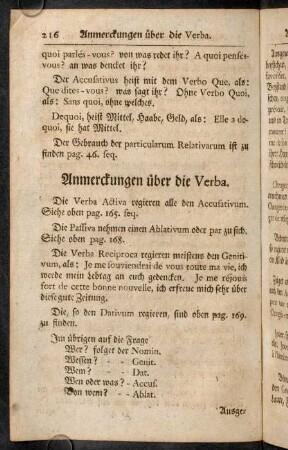 216 Anmerckungen über die Verba.
quoi parlés-vous? von was redet ihr? A quoi penses-
vous? an was dencket ihr?
Der Accusativus heist mit dem Verbo Que, als:
Que dites-vous? was sagt ihr? Ohne Verbo Quoi,
als: Sans quoi, ohne welches.
Dequoi, heist Mittel, Haabe, Geld, als: Elle a de-
quoi, sie hat Mittel.
Der Gebrauch der particularum Relativarum ist zu
finden pag. 46. seq.
Anmerckungen über die Verba.
Die Verba Activa regieren alle den Accusativum.
Siehe oben pag. 165. seq.
Die Passiva nehmen einen Ablativum oder par zu sich.
Siehe oben pag. 168.
Die Verba Reciproca regieren meistens den Geniti-
vum, als: Je me souviendrai de vous toute ma vie, ich
werde mein Lebtag an euch gedencken. Je me réjouis
fort de cette bonne nouvelle, ich erfreue mich sehr über
diese gute Zeitung.
Die, so den Dativum regieren, sind oben pag. 169.
zu finden.
Im übrigen auf die Frage
Wer? folget der Nomin.
Wessen? - - Genit.
Wem? - - Dat.
Wen oder was? - Accus.
Von wem? - - Ablat.
Ausge-